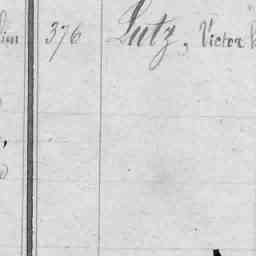 376 Lutz, Victor